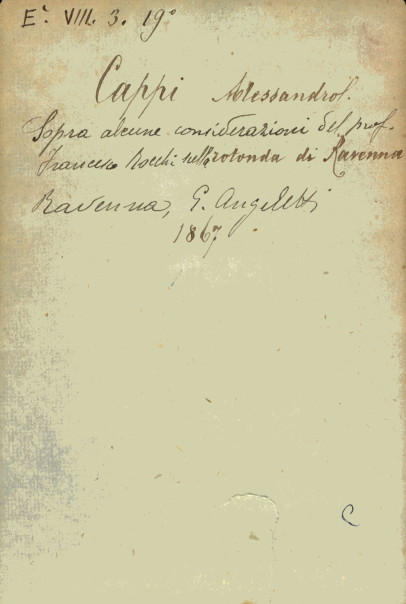 E². VIII. 3. 19°
Cappi Alessandro.
Sopra alcune considerazioni del prof.
Francesco Rocchi sulla rotonda di Ravenna
Ravenna, G. Angeletti
1867.
C